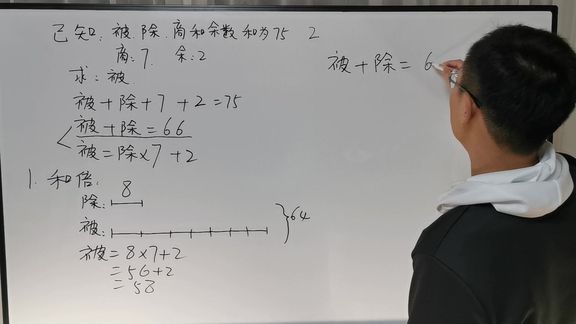 已知: 被. 除. 商和余数 和为75 2
商: 7. 余: 2
求: 被.
被+除+7+2=75
被+除=66
被=除×7+2
1. 和倍:
8
除:
被:
64
被=8×7+2
=56+2
=58
被+除=6